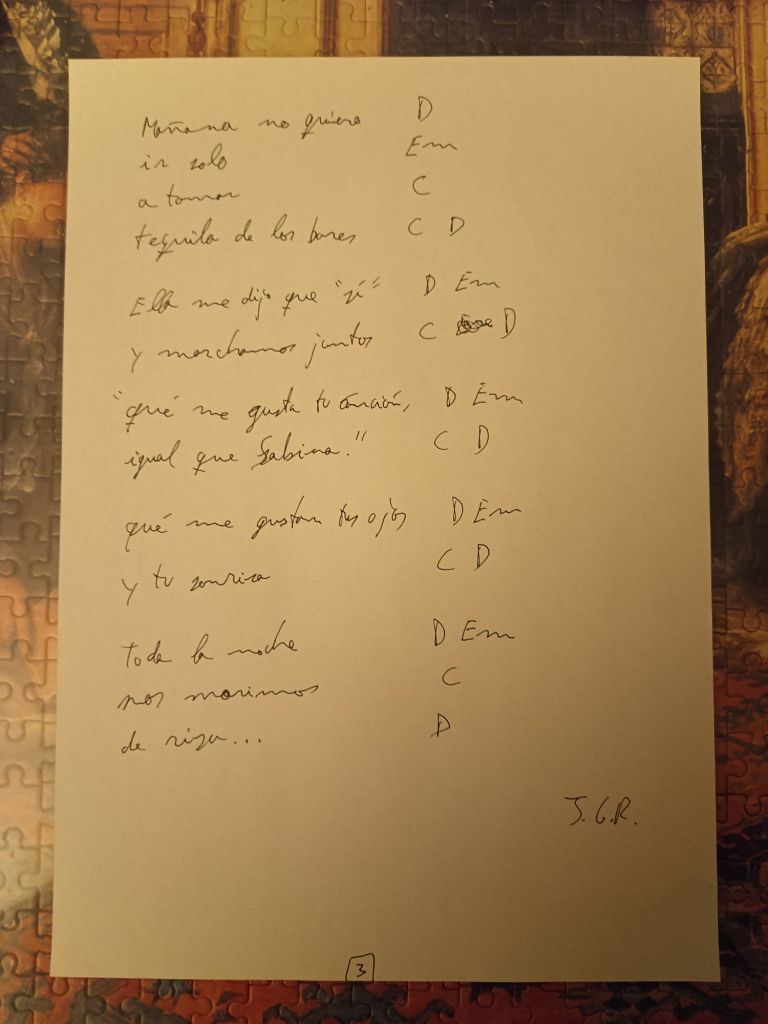 Mañana no quiero D
ir solo Em
a tomar C
tequila de los bares C D
Ella me dijo que "sí" D Em
y marchamos juntos C D
"qué me gusta tu canción, D Em
igual que Sabina." C D
qué me gustan tus ojos D Em
y tu sonrisa C D
toda la noche D Em
nos morimos C
de risa... D
J.G.R.
3